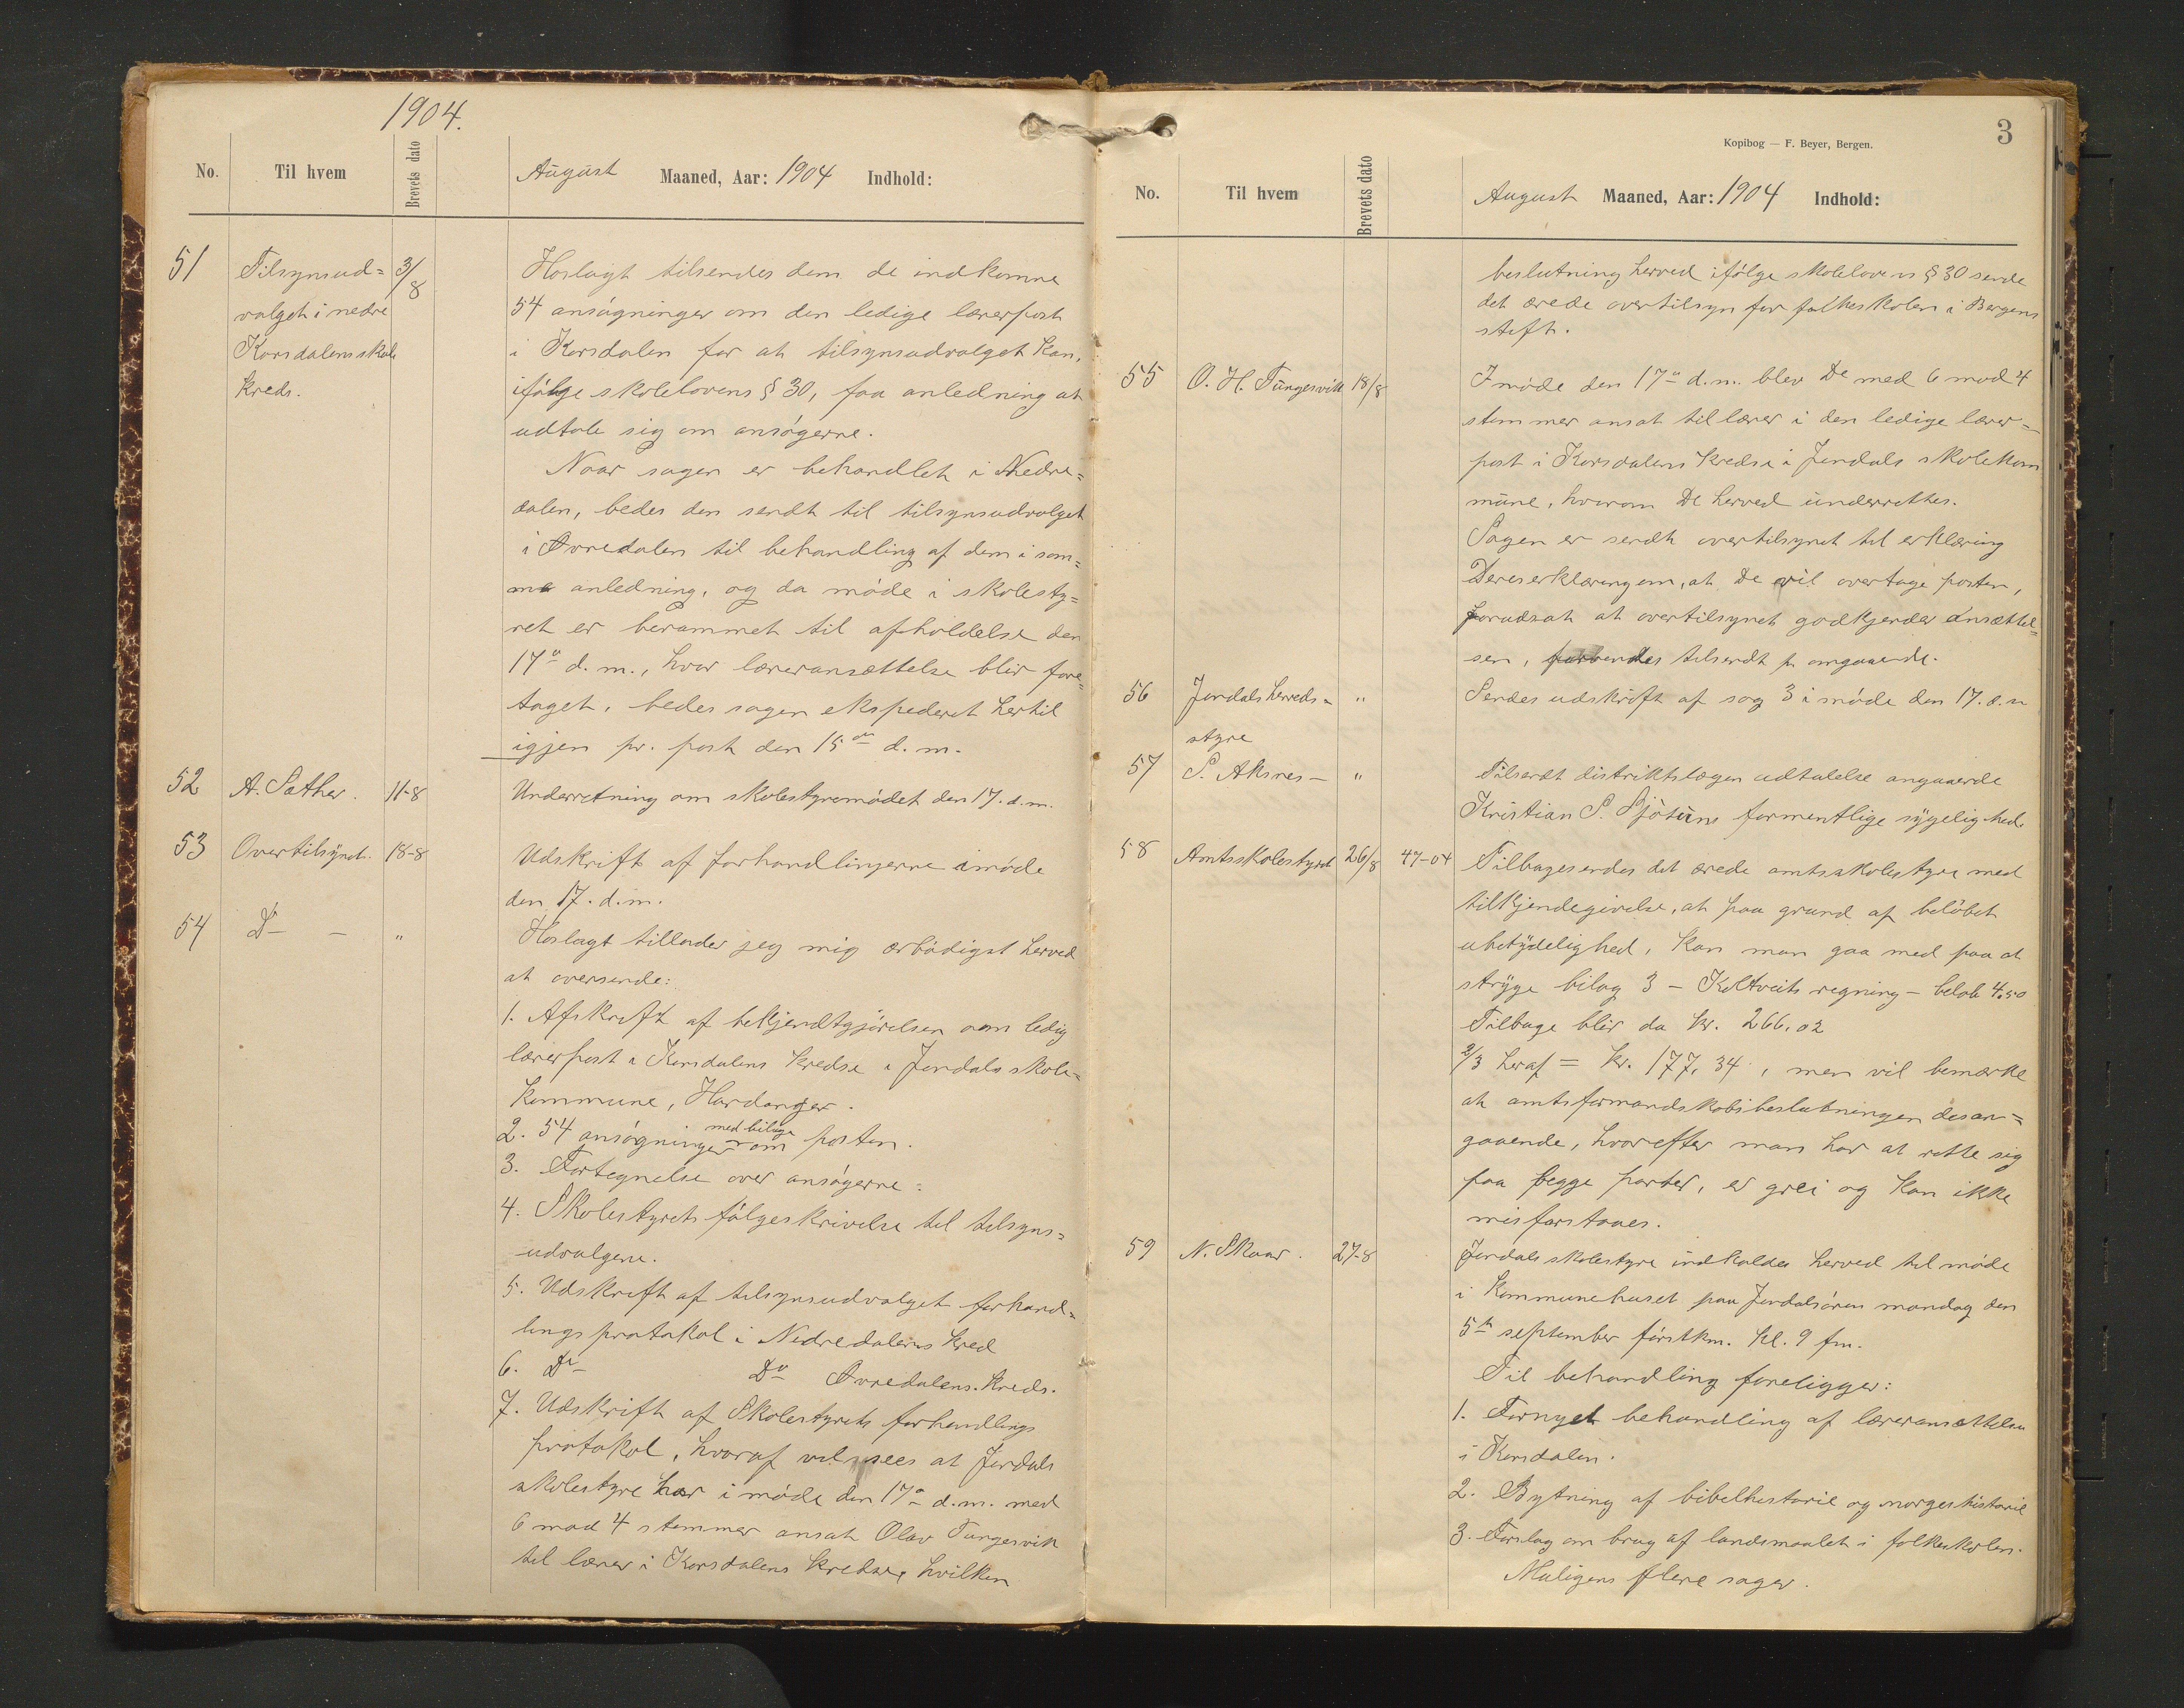 1904.
No. Til hvem Brevets dato August Maaned, Aar: 1904 Indhold:
51 Tilsynsud= 3/8 Hoslagt tilsendes dem de indkomne
valget i nedre 54 ansøgninger om den ledige lærerpost
Korsdalens skole i Korsdalen for at tilsynsudvalget kan,
kreds. ifølge skolelovens § 30, faa anledning at
udtale sig om ansøgerne.
Naar sagen er behandlet i Nedre=
dalen, bedes den sendt til tilsynsudvalget
i Øvredalen til behandling af dem i sam=
me anledning, og da møde i skolesty=
ret er berammet til afholdelse den
17de d. m., hvor læreransættelse blir fore=
taget, bedes sagen ekspederet hertil
igjen pr. post den 15de d. m.
52 A. Sæther. 11-8 Underretning om skolestyremødet den 17. d. m.
53 Overtilsynet. 18-8 Udskrift af forhandlingerne i møde
den 17. d. m.
54 Do — " Hoslagt tillader jeg mig ærbødigst herved
at oversende:
1. Afskrift af bekjendtgjørelsen om ledig
lærerpost i Korsdalens kredse i Jondals skole=
kommune, Hardanger.
med bilage
2. 54 ansøgninger om posten.
3. Fortegnelse over ansøgerne:
4. Skolestyrets følgeskrivelse til tilsyns=
udvalgene.
5. Udskrift af tilsynsudvalget forhand=
lings protokol i Nedredalens kred
6. Do Do Øvredalens. kreds.
7. Udskrift af Skolestyrets forhandlings
protokol, hvoraf vil sees at Jondals
skolestyre har i møde den 17de d. m. med
6 mod 4 stemmer ansat Olav Tungesvik
til lærer i Korsdalens kredse, hvilken
3
Kopibog — F. Beyer, Bergen.
No. Til hvem Brevets dato August Maaned, Aar: 1904 Indhold:
beslutning herved ifølge skolelovens § 30 sende
det ærede overtilsyn for folkeskolen i Bergens
stift.
55 O. H. Tungesvik 18/8 I møde den 17de d. m. blev De med 6 mod 4
stemmer ansat til lærer i den ledige lærer=
post i Korsdalens kredse i Jondals skolekom
mune, hvorom De herved underrettes.
Sagen er sendt overtilsynet til erklæring
Deres erklæring om, at De vil overtage posten,
forudsat at overtilsynet godkjender ansættel=
sen, forventes tilsendt pr omgaaende.
56 Jondals herreds= " Sendes udskrift af sag 3 i møde den 17. d. m
styre
57 S. Aksnes — " Tilsendt distriktslægen udtalelse angaaende
Kristian S. Sjøtuns formentlige sygelighed.
58 Amtsskolestyret 26/8 47-04 Tilbagesendes det ærede amtsskolestyre med
tilkjendegivelse, at paa grund af beløbet
ubetydelighed, kan man gaa med paa at
stryge bilag 3 — Koltveits regning — beløb 4,50
Tilbage blir da kr. 266,02
2/3 heraf = kr. 177,34, men vil bemærke
at amtsformandskabsbeslutningen desan=
gaaende, hvorefter man har at rette sig
paa begge parter, er grei og kan ikke
misforstaaes.
59 N. Skaar. 27-8 Jondals skolestyre indkaldes herved til møde
i Kommunehuset paa Jondalsøren mandag den
5te september førstkm. kl. 9 fm.
Til behandling foreligger:
1. Fornyet behandling af læreransættelsen
i Korsdalen.
2. Bytning af bibelhistorie og norgeshistorie
3. Forslag om brug af landsmaalet i folkeskolen.
Muligens flere sager.